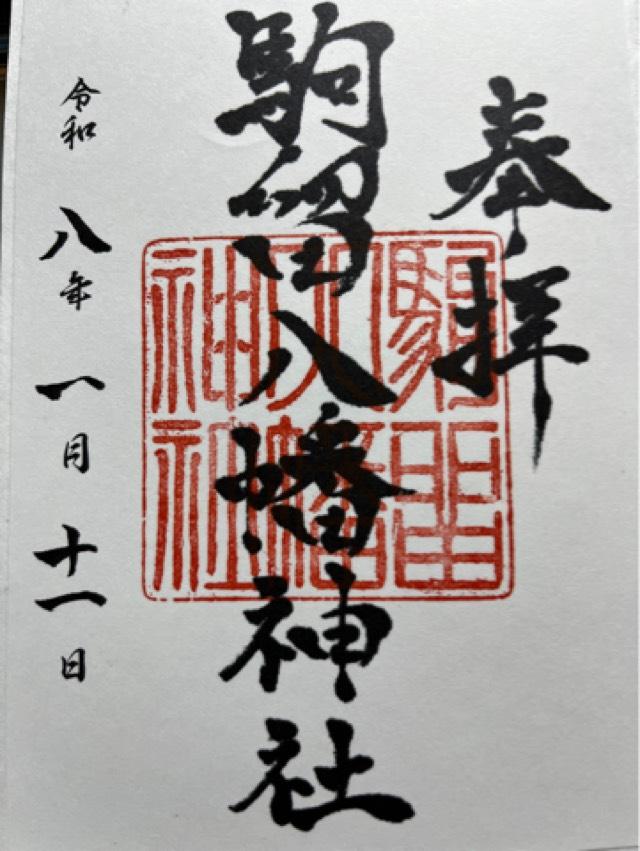 奉拝
駒留八幡神社
駒留
八幡
神社
令和八年一月十一日